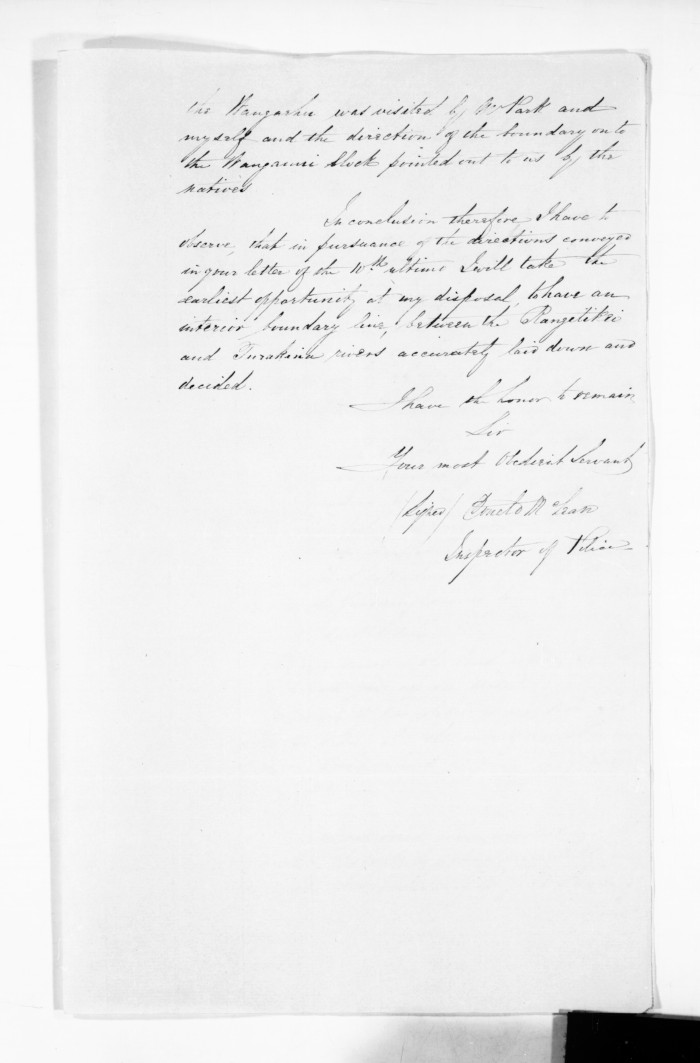 the Wangaehu was visited by Mr Park and
myself and the direction of the boundary on to
the Wanganui block pointed out to us by the
natives
In conclusion therefore, I have to
observe, that in pursuance of the directions conveyed
in your letter of the 10th ultimo I will take the
earliest opportunity at my disposal, to have an
interior boundary line, between the Rangetikei
and Turakina rivers accurately laid down and
decided.
I have the honor to remain
Sir
Your most Obedient Servant
(Signed) Donald McLean
Inspector of Police